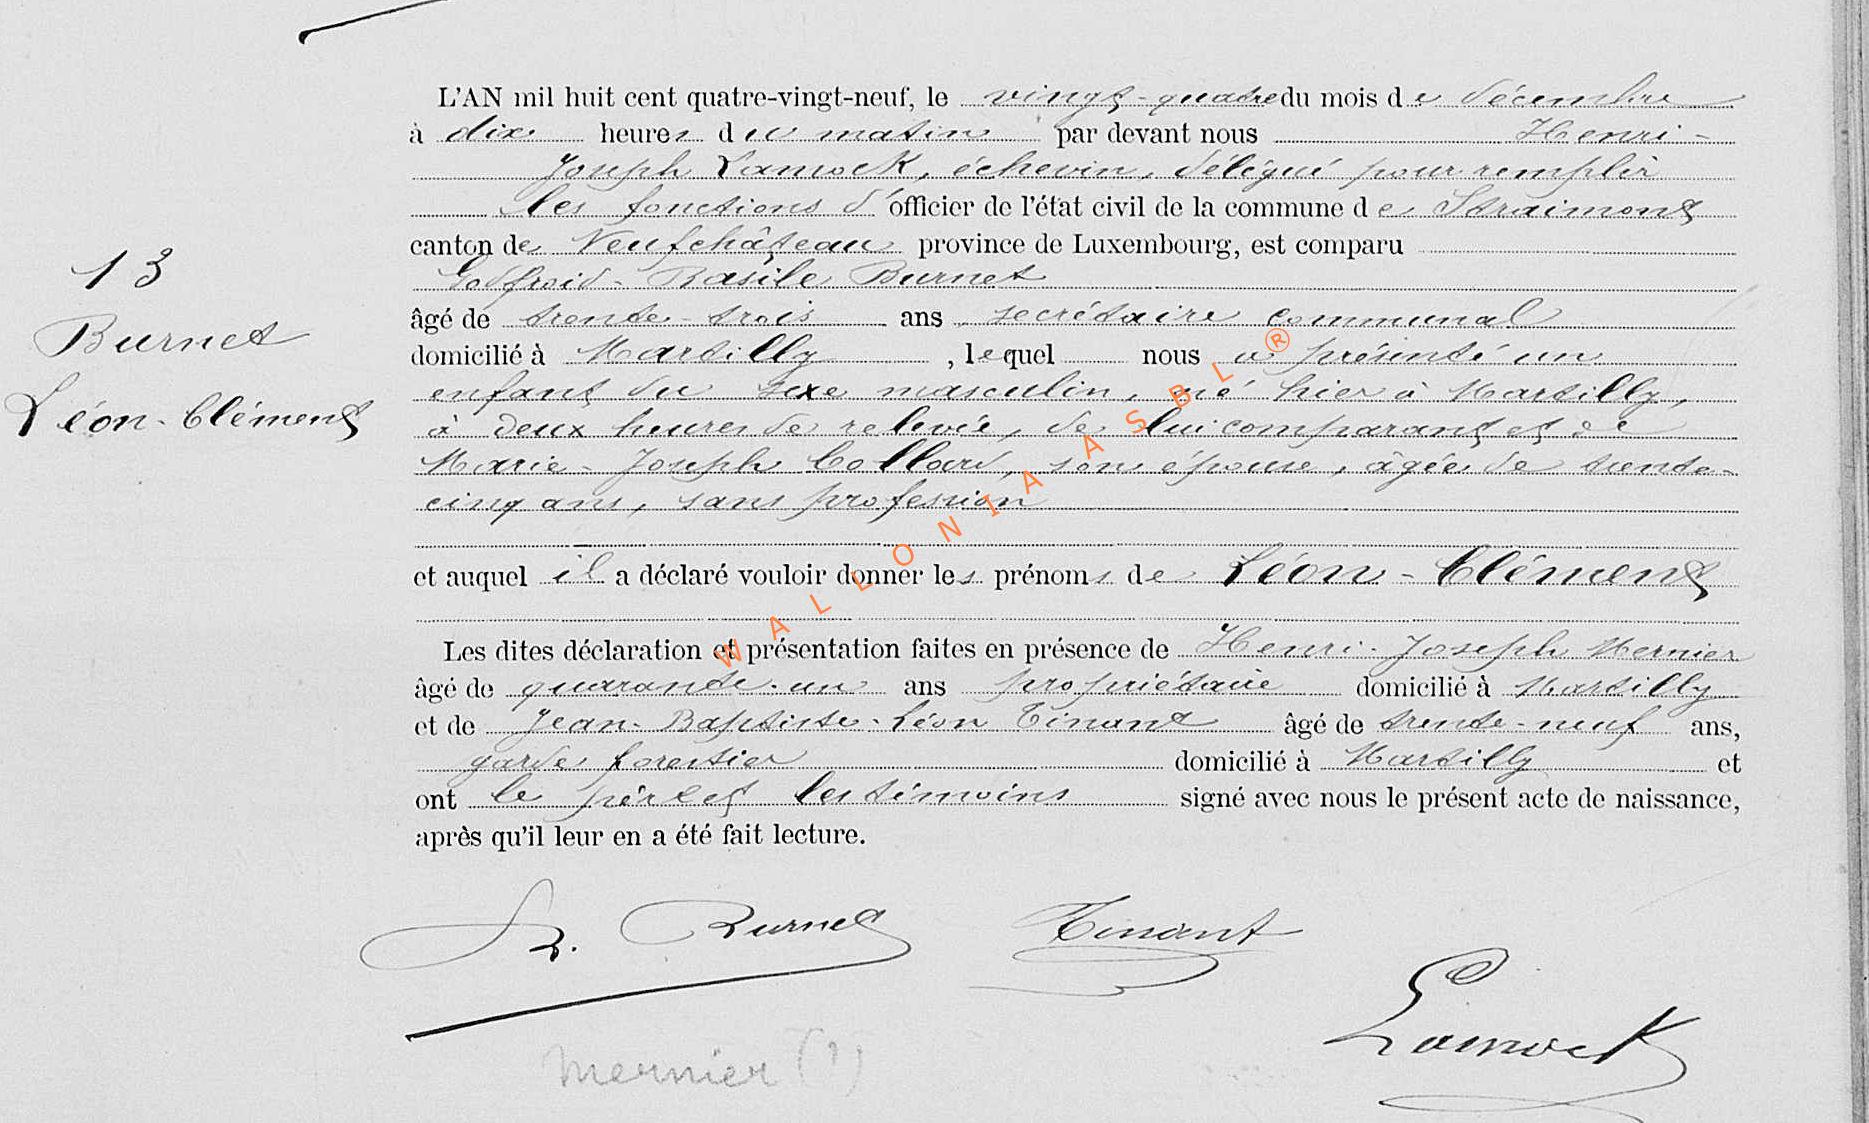 L'AN mil huit cent quatre-vingt-neuf, le vingt-quatre du mois de décembre
à dix heures du matin par devant nous Henri-
Joseph Lamock, échevin, délégué pour remplir
les fonctions d'officier de l'état civil de la commune de Straimont
canton de Neufchâteau province de Luxembourg, est comparu
Godfroid-Basile Burnet
âgé de trente-trois ans secrétaire communal
domicilié à Martilly, lequel nous a présenté un
enfant du sexe masculin, né hier à Martilly,
à deux heures de relevée, de lui comparant et de
Marie-Joseph Collard, son épouse, âgée de trente-
cinq ans, sans profession
et auquel il a déclaré vouloir donner les prénoms de Léon-Clément
Les dites déclaration et présentation faites en présence de Henri-Joseph Mernier
âgé de quarante-un ans propriétaire domicilié à Martilly
et de Jean-Baptiste-Léon Tinant âgé de trente-neuf ans,
garde forestier domicilié à Martilly et
ont le père et les témoins signé avec nous le présent acte de naissance,
après qu'il leur en a été fait lecture.
13
Burnet
Léon-Clément
WALLONIA ASBL ®
Burnet
Tinant
Lamock
Mernier (1)